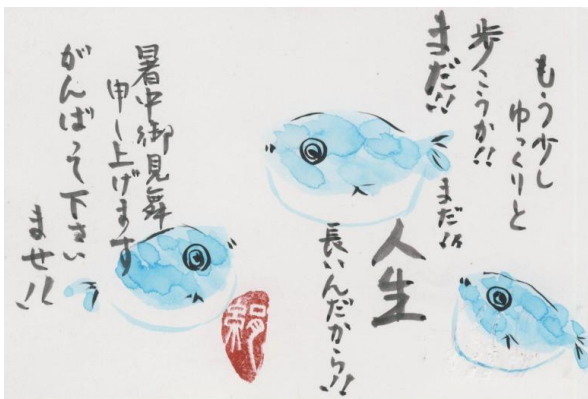 もう少し
ゆっくりと
歩こうか!!
まだ!!
まだ!!
人生
長いんだから!!
暑中御見舞
申し上げます
がんばって下さい
ませ!!